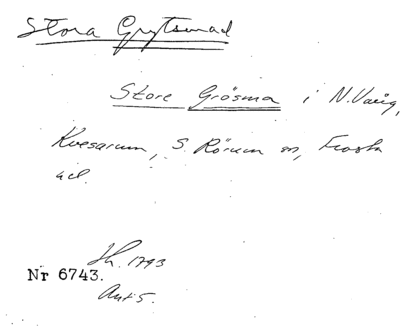 Stora Grytsmad
Store Grösma i N. Väág,
Kvesarum, S. Rörum sn, Frosta
hd.
Sk. 1793
Nr 6743.
Ant 5.